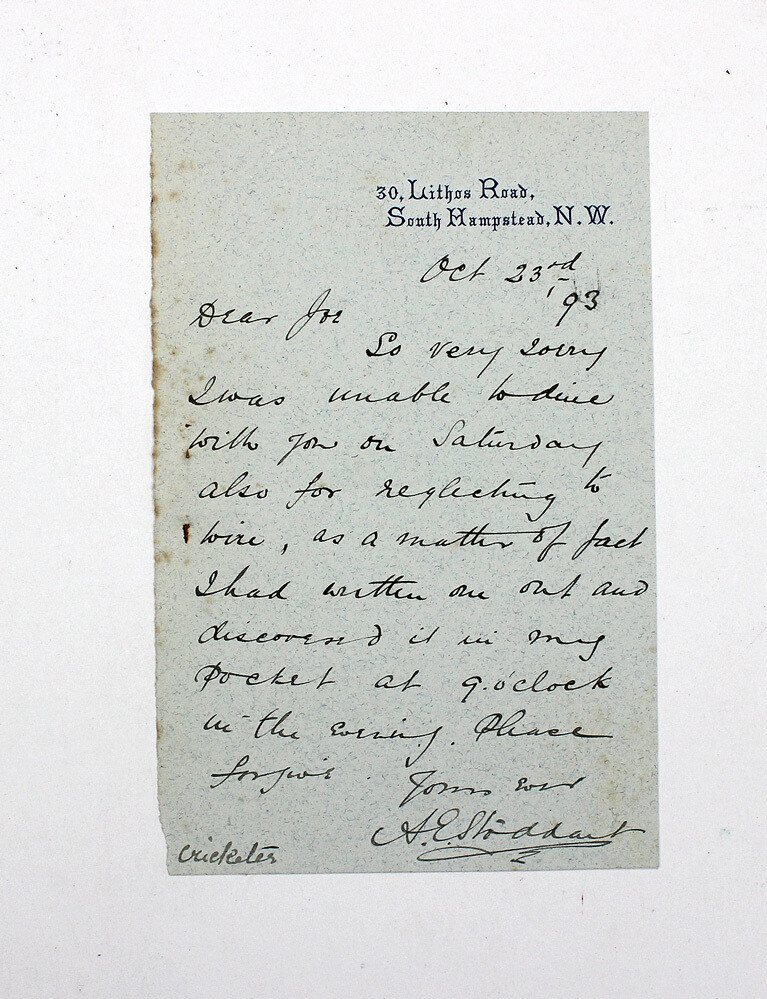 30, Lithos Road,
South Hampstead, N.W.
Oct 23rd
93
Dear Joe
So very sorry
I was unable to dine
with you on Saturday
also for neglecting to
wire, as a matter of fact
I had written one out and
discovered it in my
pocket at 9.o'clock
in the evening. Please
forgive. Yours ever
A.E.Stoddart
cricketer